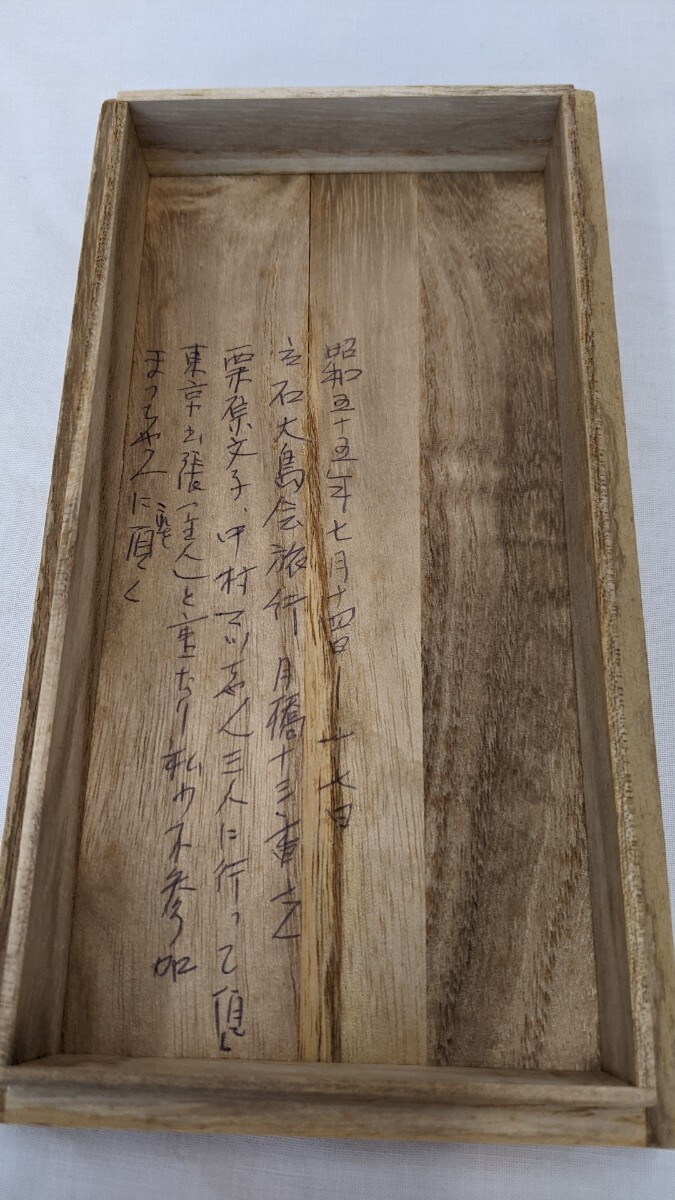 昭和五十五年七月十四日ー十七日
立石大島会旅行 月橋十三重之
栗原文子、中村マツちゃん三人に行って頂く
東京出張「主人」と重なり私が不参加
まっちゃんに頂く